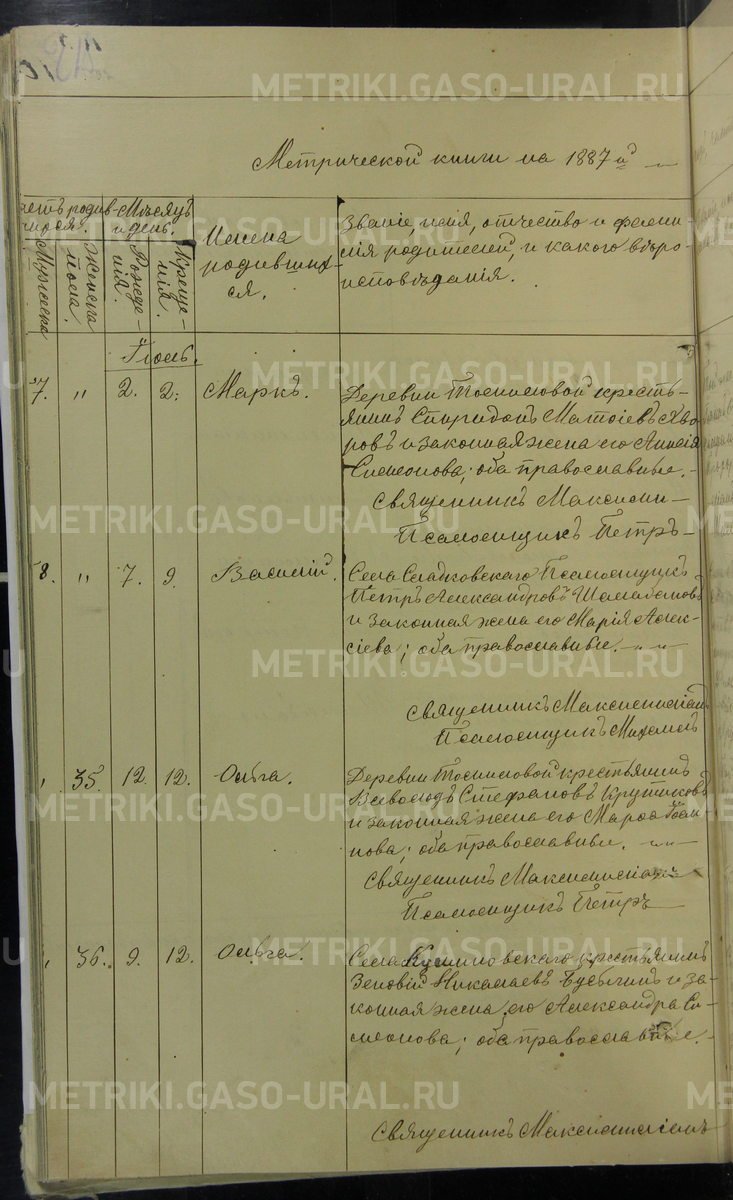 METRIKI.GASO-URAL.RU
Метрической книги на 1887 й
Счетъ родив-
шихся.
Мѣсяцъ
и день.
Мужеска
Женска
пола.
Рожде-
нія.
Креще-
нія.
Имена
родивших-
ся.
Званіе, имя, отчество и фами-
лія родителей, и какого вѣро-
исповѣданія.
Іюль.
37. " 2. 2. Маркъ. Деревни крестья-
янинъ Спиридонъ
ровъ и законная жена его
Симеонова; оба православные.
Священникъ Максими-
Псаломщикъ Петръ
38. " 7. 9. Василій. Села Сладковскаго Псаломщикъ
Петръ Александровъ
и законная жена его Марія Алек-
сіева; оба православные.
Священникъ Максимиліанъ
Псаломщикъ Михаилъ
" 35. 12. 12. Ольга. Деревни крестьянинъ
Всеволодъ Стефановъ
и законная жена его
нова; оба православные.
Священникъ Максимиліанъ
Псаломщикъ Петръ
" 36. 9. 12. Ольга. Села крестьянинъ
Зеновій Николаевъ и за-
конная жена его Александра Си-
меонова; оба православные.
Священникъ Максимиліанъ